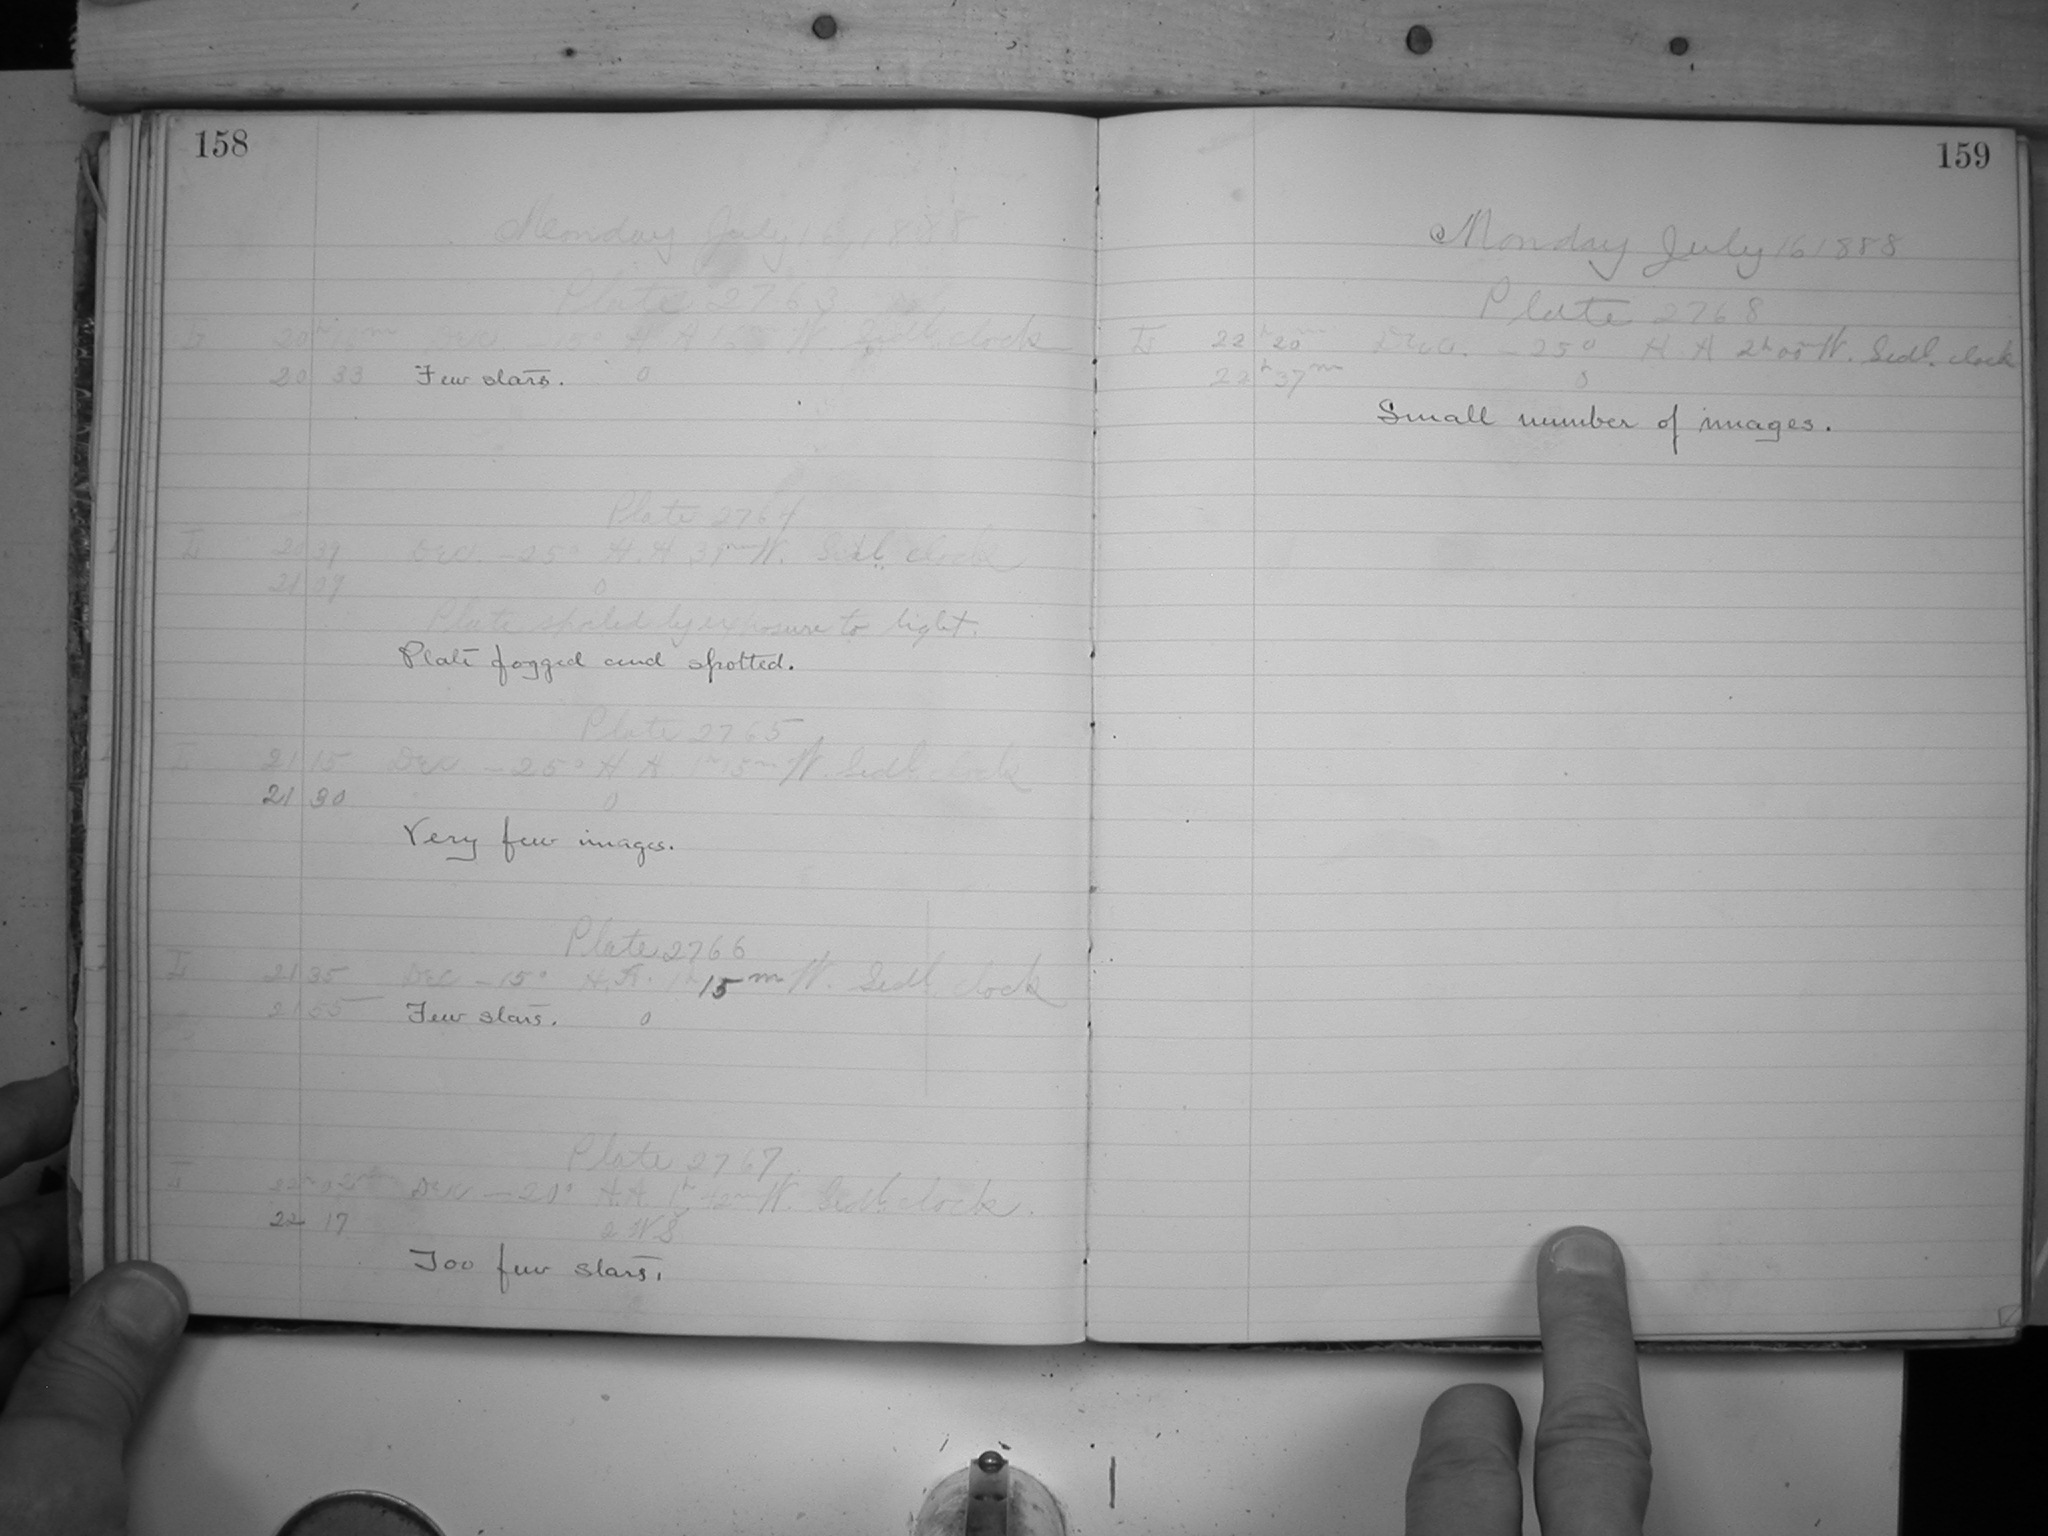 158
Monday July 16, 1888
Plate 2763
20 Dec. -15° H A W. Sedl. clock
20 33 Few stars. 0
Plate 2764
20 39 Dec. -25° H. A W. Sedl. clock
21 09 0
Plate spoiled by exposure to light.
Plate fogged and spotted.
Plate 2765
21 15 Dec -25° H A. 1h 15m W. Sedl. clock
21 30 0
Very few images.
Plate 2766
21 35 Dec -15° H. A. 1h 15m W. Sedl. clock
21 55 Few stars. 0
Plate 2767
22h 02m Dec -20° H. A. W. Sedl. clock.
22 17
Too few stars.
159
Monday July 16 1888
Plate 2768
22h 20m Dec. -25° H. A 2h 00m W. Sedl. clock
22h 37m 0
Small number of images.